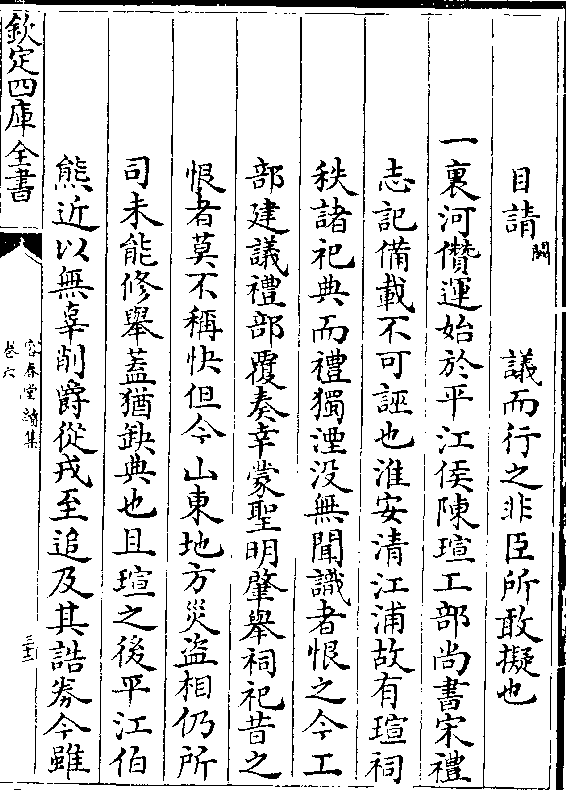 目請闕　議而行之非臣所敢擬也
一裏河儹運始於平江侯陳瑄工部尚書宋禮
志記備載不可誣也淮安清江浦故有瑄祠
秩諸祀典而禮獨湮没無聞識者恨之今工
部建議禮部覆奏幸蒙聖明肇舉祠祀昔之
恨者莫不稱快但今山東地方災盜相仍所
司未能修舉蓋猶缺典也且瑄之後平江伯
熊近以無辜削爵從戎至追及其誥劵今雖
欽定四庫全書
容春堂續集
卷六
三十二